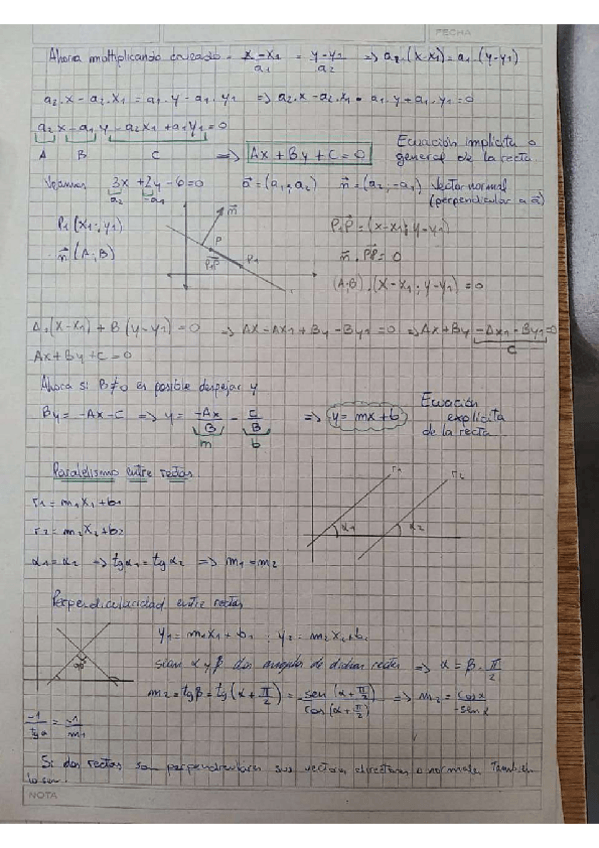 FECHA
Ahora multiplicando cruzado = x-x1/a1 = y-y1/a2 => a2.(x-x1)=a1.(y-y1)
a2.x-a2.x1=a1.y-a1.y1 => a2.x-a2.x1-a1.y+a1.y1=0
a2x-a1y-a2x1+a1y1=0
A B C => Ax+By+C=0 Ecuación implícita o general de la recta
Veamos 3x+2y-6=0 a=(a1,a2) n=(a2,-a1) Vector normal
a2 -a1 (perpendicular a a)
P1(x1,y1) n P1P=(x-x1;y-y1)
n(A;B) P P1 n.P1P=0
(A;B).(x-x1;y-y1)=0
A.(x-x1)+B(y-y1)=0 => Ax-Ax1+By-By1=0 => Ax+By-Ax1-By1=0
C
Ax+By+C=0
Ahora si B≠0 es posible despejar y
By=-Ax-C => y=-Ax/B-C/B => y=mx+b Ecuación explícita de la recta
m b
Paralelismo entre rectas
r1 r2
r1=m1x1+b1
α1 α2
r2=m2x2+b2
α1=α2 => tgα1=tgα2 => m1=m2
Perpendicularidad entre rectas
y1=m1x1+b1; y2=m2x2+b2
sean α y β dos ángulos de dichas rectas => α=β.π/2
90°
m2=tgβ=tg(α+π/2)=sen(α+π/2)/cos(α+π/2) => m2=cosα/-senα
-1/tgα=-1/m1
Si dos rectas son perpendiculares sus vectores directores o normales también
lo son.
NOTA